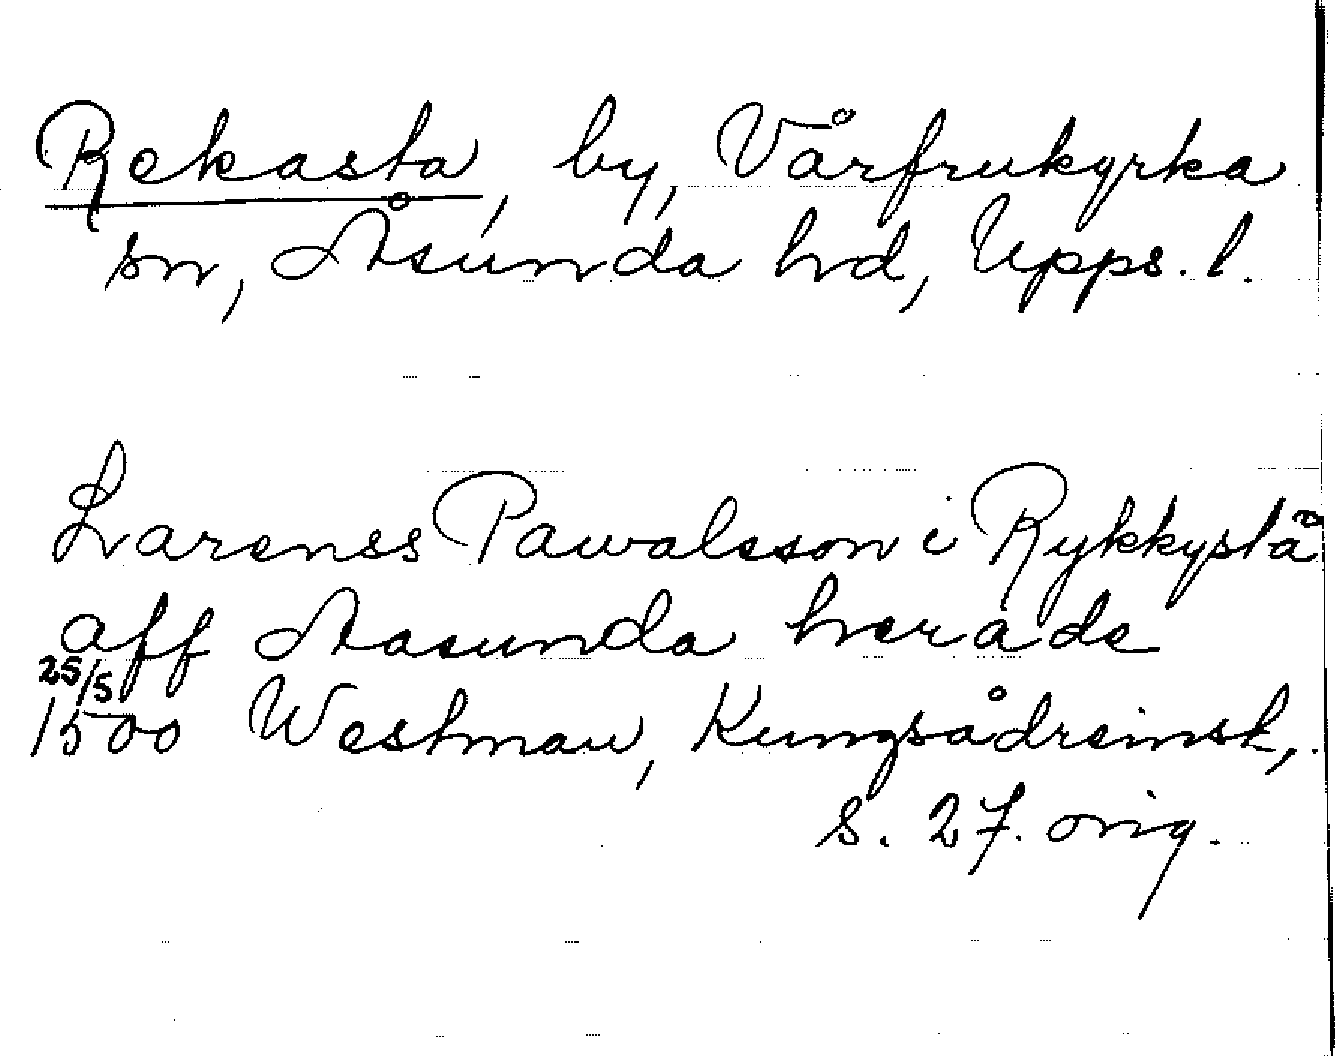 Rekasta, by, Vårfrukyrka
sn, Åsunda hd, Upps. l.
Larenss Pawalsson i Rykkystå
aff Aasunda heräde
25/5
1500 Westman, Kungsådreinsk,
s. 27. orig.